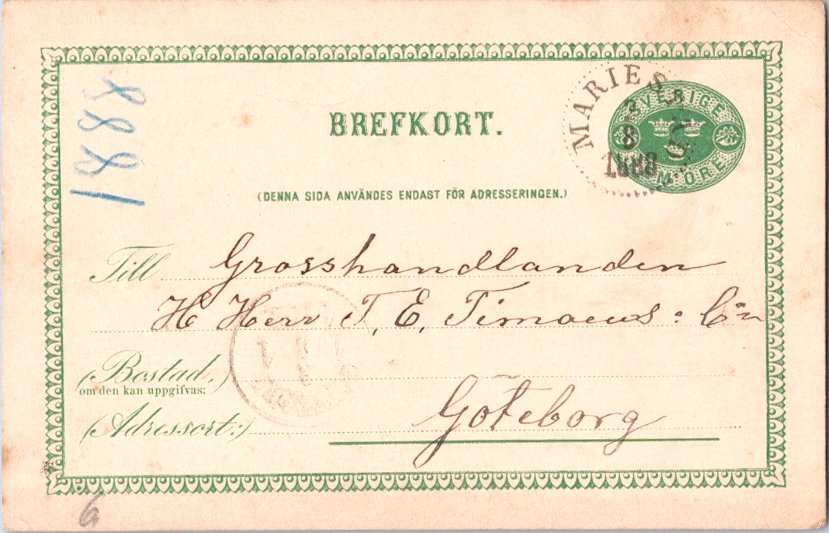 1888
BREFKORT.
SVERIGE
FEM ÖRE
8
1888
(DENNA SIDA ANVÄNDES ENDAST FÖR ADRESSERINGEN.)
Till Grosshandlanden
H Herr T. E. Timaeus & C:n
(Bostad,)
om den kan uppgifvas:
(Adressort:) Göteborg
6